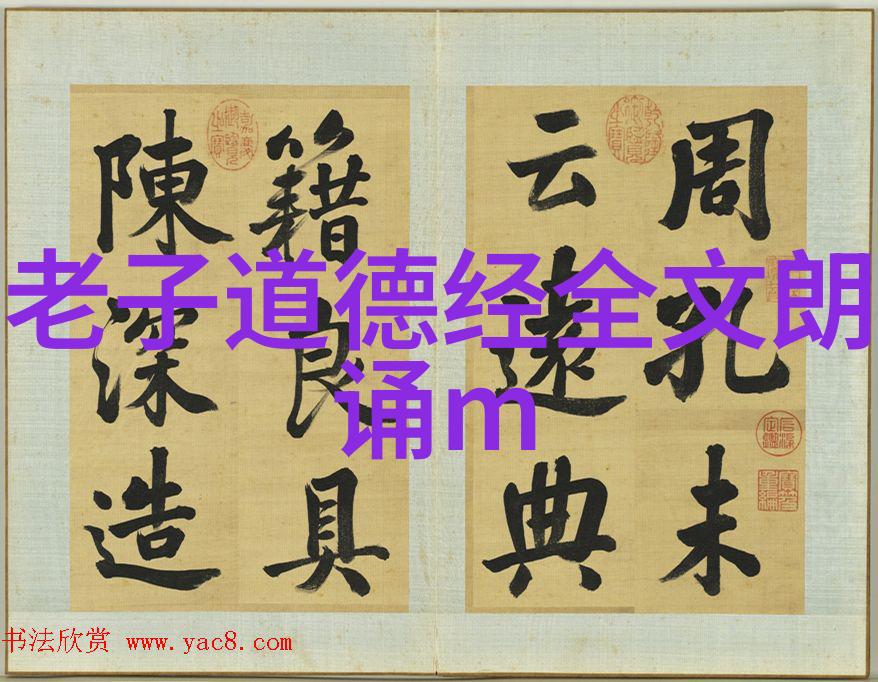 周孔未
云遠典
籍良具
陳深造
老子道德经全文朗
诵m
书法欣赏 www.yac8.com